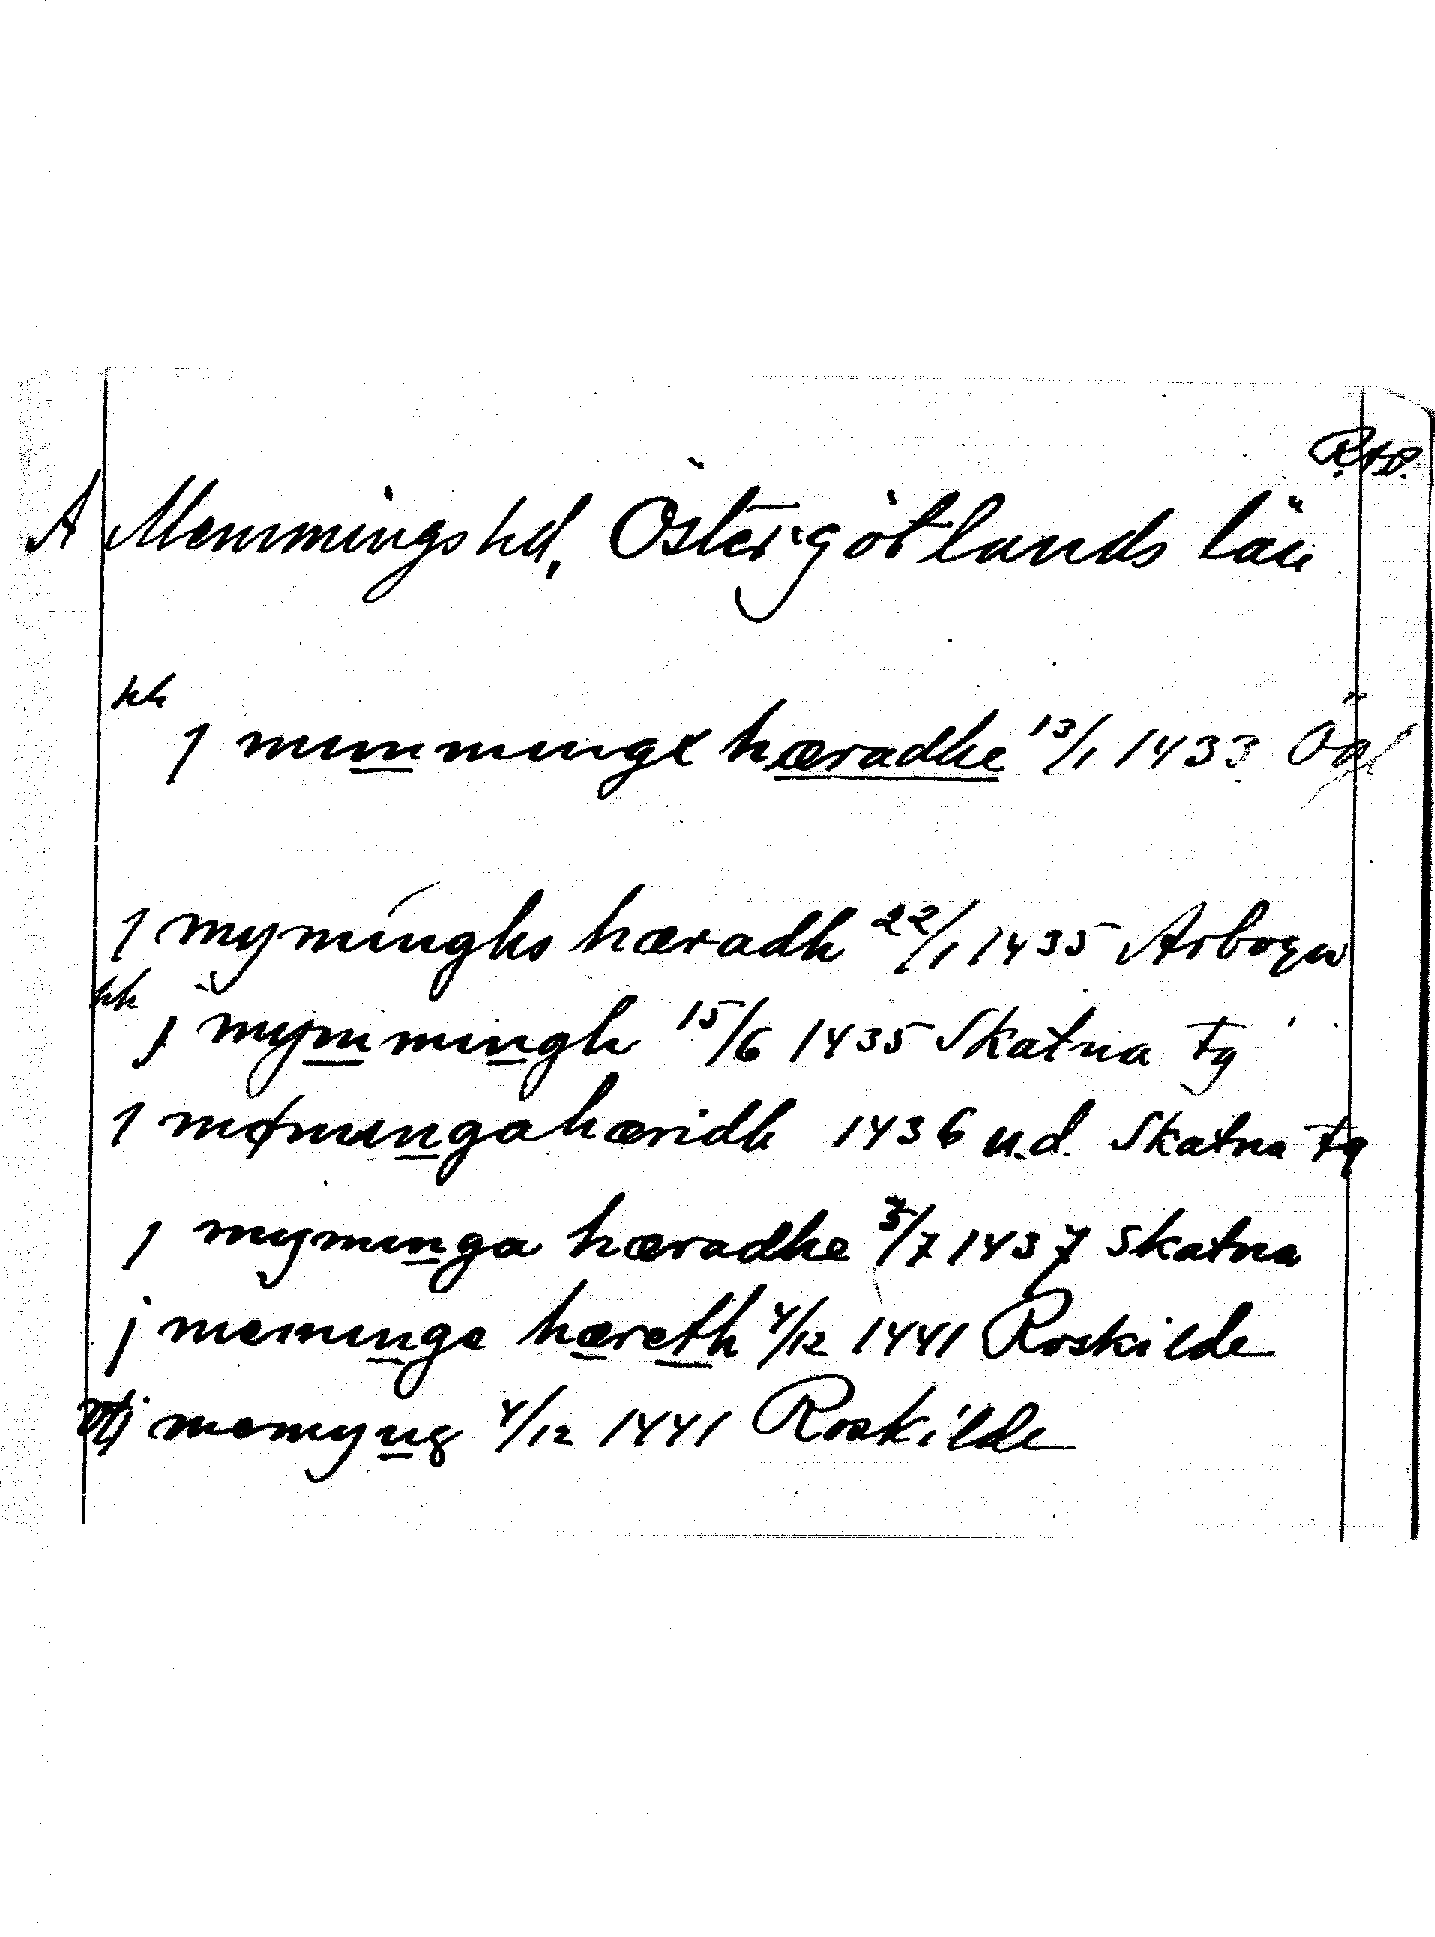 RAP.
A Memmings hd, Östergötlands län
hk
j memmunge hæradhe 13/1 1433 Ögl
j mymínghs hæradh 22/1 1435 Arboga
hk j mymmingh 15/6 1435 Skatna tg
j mømungahæridh 1436 u.d. Skatna tg
j myminga hæradhe 3/7 1437 Skatna
j memunge hæreth 4/12 1441 Roskilde
j memyng 4/12 1441 Roskilde